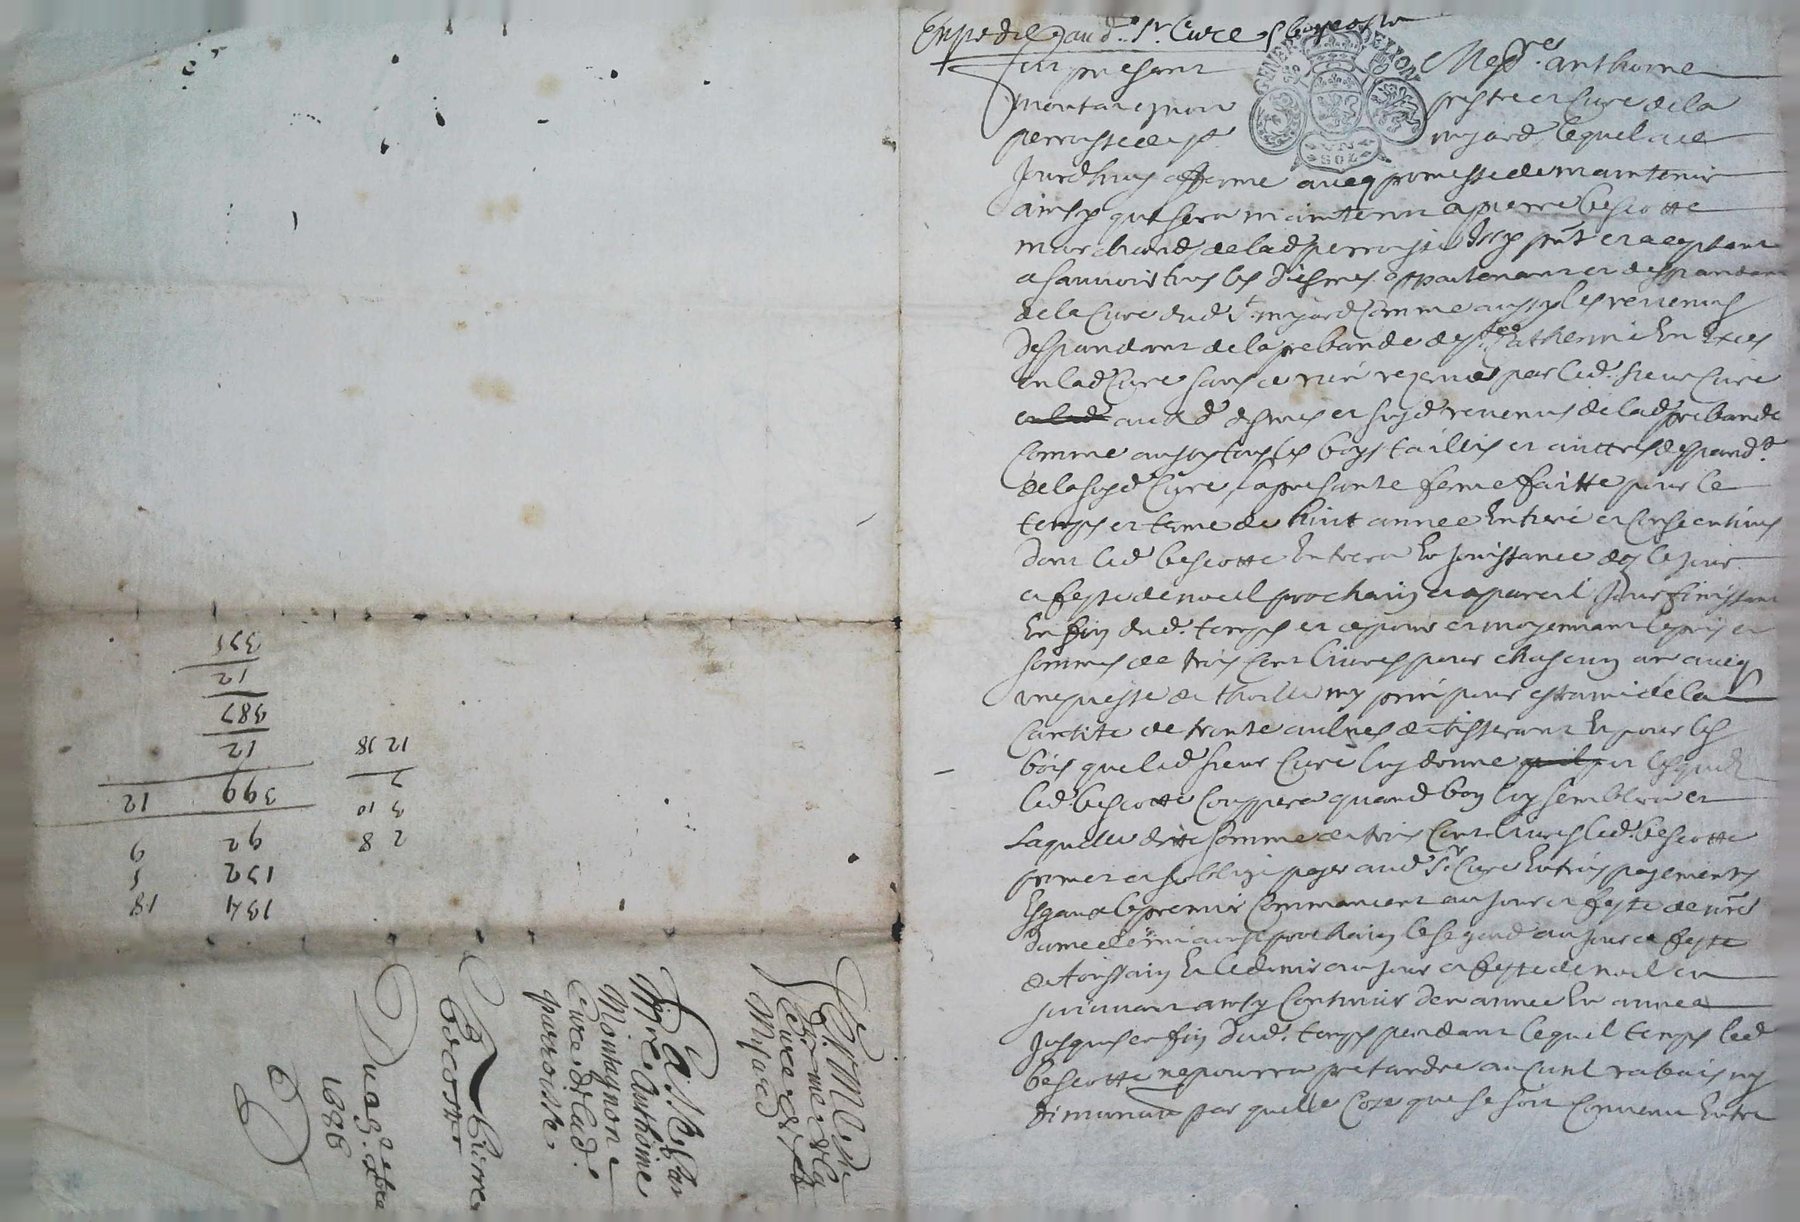 Expedie aud. Sr. Cure
Fut presant Mess.re Anthoine
Montaignon prestre et Cure de la
perroisse de St mjard lequel a ce
Jourdhuy afferme aveq promesse de maintenir
ainsy que sera maintenir a pierre bescotte
marchand de lad perroisse Isy pnt et aceptant
a sauvoir tous les diesmes appartenant et despandant
de la Cure dud St. mjard Comme aussy les revenus
Despandant de la prebande de Ste Catherine
en lad Cure sans ce rien rezerver par led. sieur Cure
aud d. desmes et susd revenus de lad prebande
Comme aussy tous les boys taillis et auttres despandt
de la susd Cure, la presante ferme faitte pour le
temps et terme de huit annee Entiere et Consecutives
Dont led bescotte Entrera En Jouissance des le Jour
et feste de noel prochain et a pareil Jour finissant
En fin dud. temps et ce pour et moyennant le pris et
sommes de trois Cent livres pour chascun an aveq
une piesse de thoille my prin pour estrain de la
Cantite de trante aulnes de tisserant Et pour les
bois que led sieur Cure luy donne et lesquels
led bescotte Couppera quand bon luy semblera et
Laquelle ditte somme de trois Cent livres led. bescotte
promet et soblige payer aud Sr. Cure En trois payements
Esgaux le premier Commancent au Jour et feste de nre
dame de mi aoust prochain le segond au Jour et feste
de toissain Et le dernier au Jour et feste de noel en
suivant ainsy Continuer de annee En annee
Jusques en fin dud. temps pendant lequel temps led
bescotte ne pourra pretandre aucune rabais ny
diminution par quelle Coze que se soit Convenu Entre
134 18
152 5
92 9
399 12
12
387
12
2 8
3 10
7
12 18
ferme de la
Cure de St
Mijard
Passe par
Mre. Anthoine
Montagnon
Cure de lad.
parroisse
A Pierre
Becotte
Du 2e
1686